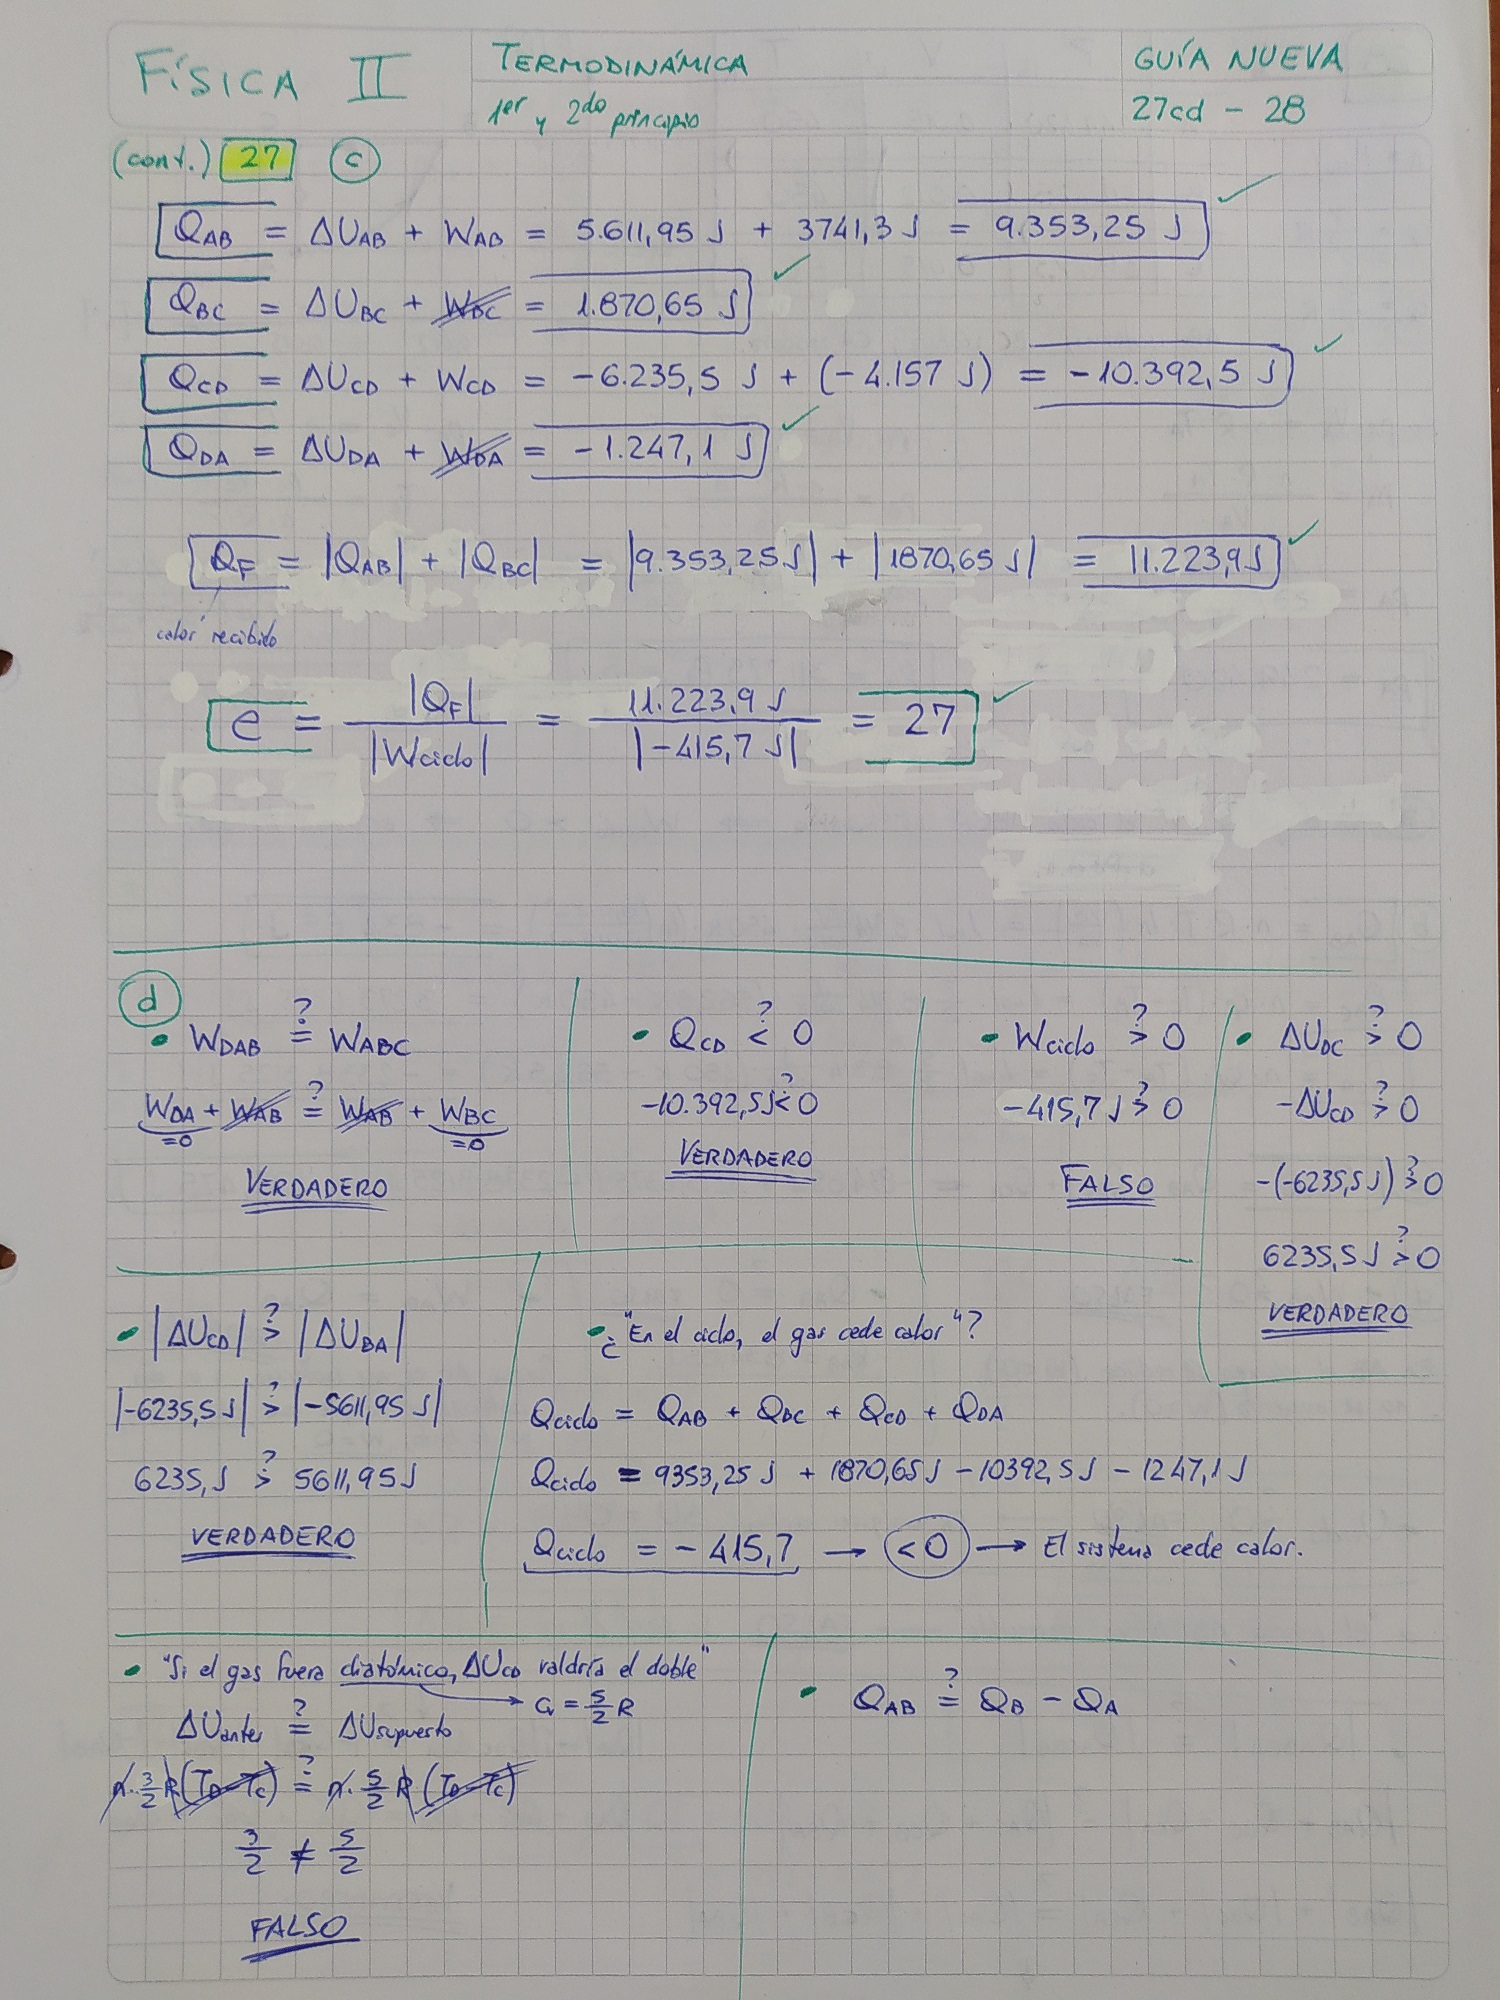 FÍSICA II
TERMODINÁMICA
1er y 2do principio
GUÍA NUEVA
27cd - 28
(cont.) 27 c
QAB = ΔUAB + WAB = 5.611,95 J + 3741,3 J = 9.353,25 J ✓
QBC = ΔUBC + WBC = 1.870,65 J ✓
QCD = ΔUCD + WCD = -6.235,5 J + (-4.157 J) = -10.392,5 J ✓
QDA = ΔUDA + WDA = -1.247,1 J ✓
QF = |QAB| + |QBC| = |9.353,25 J| + |1870,65 J| = 11.223,9 J ✓
calor recibido
e = |QF| / |Wciclo| = 11.223,9 J / |-415,7 J| = 27 ✓
d
• WDAB ≟ WABC
WDA + WAB ≟ WAB + WBC
=0 =0
VERDADERO
• QCD <? 0
-10.392,5 J <? 0
VERDADERO
• Wciclo >? 0
-415,7 J >? 0
FALSO
• ΔUDC >? 0
-ΔUCD >? 0
-(-6235,5 J) >? 0
6235,5 J >? 0
VERDADERO
• |ΔUCD| >? |ΔUDA|
|-6235,5 J| >? |-5611,95 J|
6235,J >? 5611,95 J
VERDADERO
• ¿"En el ciclo, el gas cede calor"?
Qciclo = QAB + QBC + QCD + QDA
Qciclo = 9353,25 J + 1870,65 J - 10392,5 J - 1247,1 J
Qciclo = - 415,7 → <0 → El sistema cede calor.
• "Si el gas fuera diatómico, ΔUCD valdría el doble"
→ Cv = 5/2 R
ΔUantes ≟ ΔUsupuesto
n. 3/2 R (TD - TC) ≟ n. 5/2 R (TD - TC)
3/2 ≠ 5/2
FALSO
• QAB ≟ QB - QA